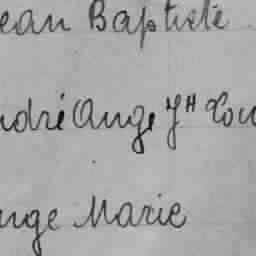 ean Baptiste
ndré Ange Jh Lou
nge Marie